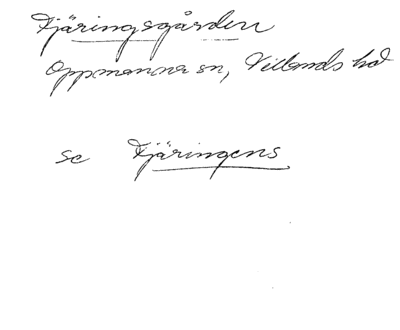 Fjäringsgården
Oppmanna sn, Villands hd
se Fjäringens